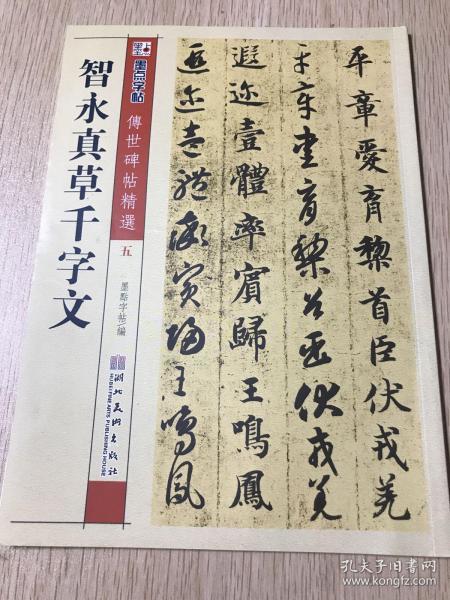 智永真草千字文
墨点字帖
傳世碑帖精選
五
墨點字帖/編
湖北美术出版社
HUBEI FINE ARTS PUBLISHING HOUSE
平章愛育黎首臣伏戎羌
平章愛育黎首臣伏戎羌
遐迩壹體率賓歸王鳴鳳
遐迩壹體率賓歸王鳴鳳
孔夫子旧书网
www.kongfz.com